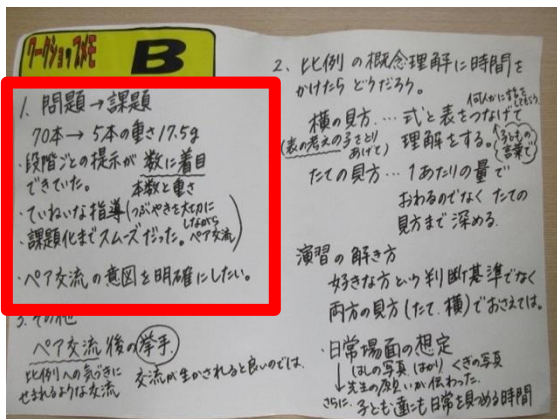 ワークショップメモ B
1. 問題→課題
70本→5本の重さ17.5g
・段階ごとの提示が数に着目
できていた。 本数と重さ
・ていねいな指導(つぶやきを大切に
しながら
・課題化までスムーズだった。ペア交流)
・ペア交流の意図を明確にしたい。
3. その他
ペア交流後の挙手
比例への気づきに
せまれるような交流
交流が生かされると良いのでは。
2、比例の概念理解に時間を
かけたらどうだろう。
横の見方…式と表をつなげて
何人かにすすめてもらう
(表の考えの子をとり
あげて)
理解をする。
子どもの
言葉で
たての見方…1あたりの量で
おわるのでなくたての
見方まで深める。
演習の解き方
好きな方という判断基準でなく
両方の見方(たて、横)でおさえては。
・日常場面の想定
はしの写真、はかり くぎの写真
↓先生の願いが伝わった。
さらに、子ども達にも日常を見つめる時間